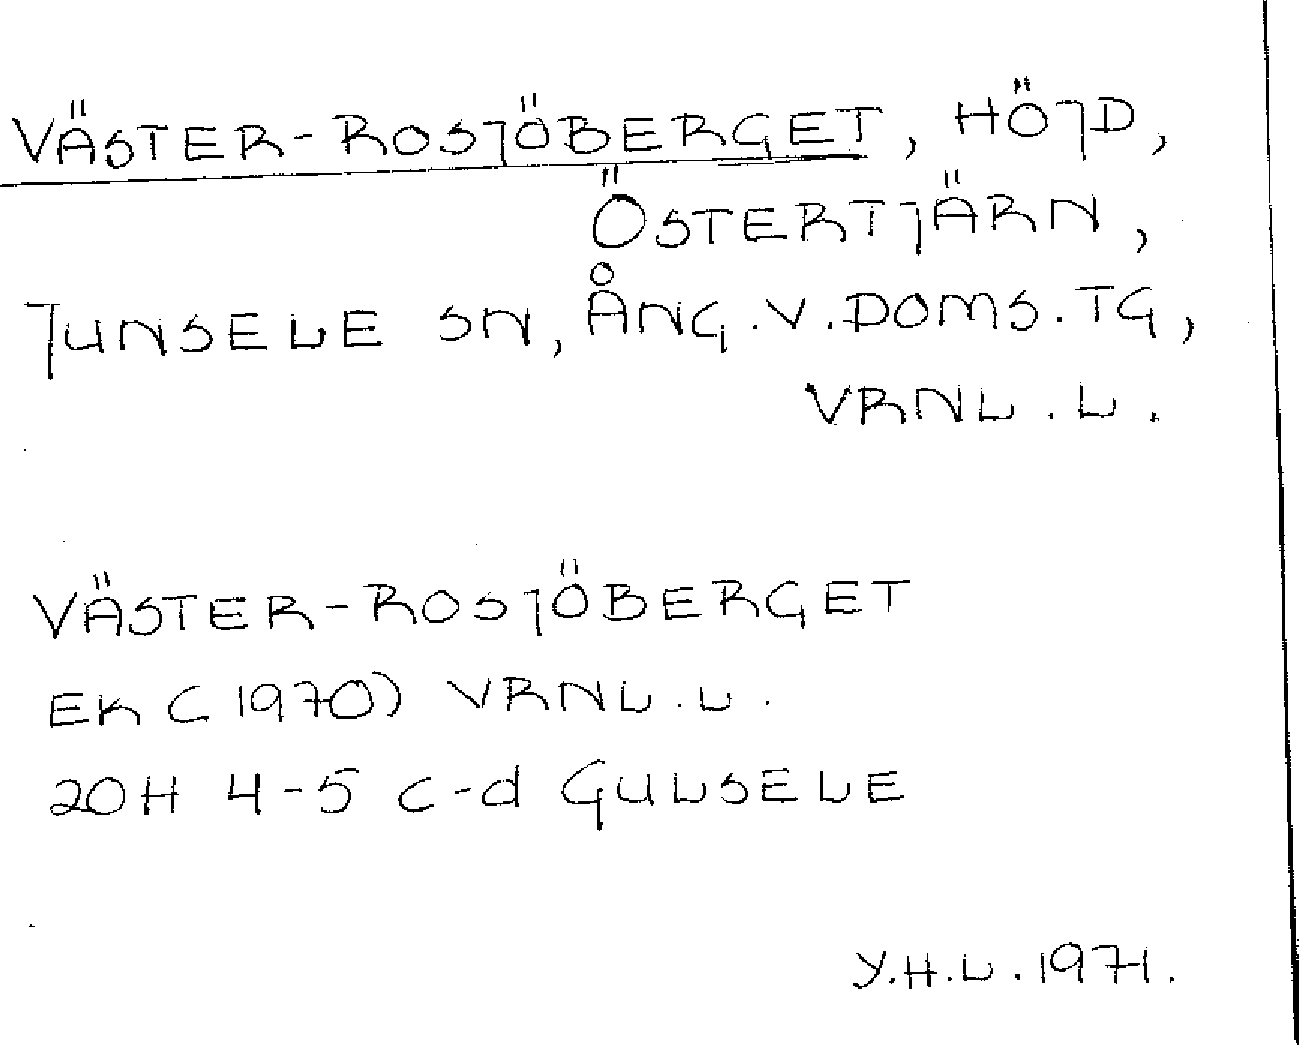 VÄSTER-ROSJÖBERGET, HÖJD,
ÖSTERTJÄRN,
JUNSELE SN, ÅNG.V.DOMS.TG,
VRNL.L.
VÄSTER-ROSJÖBERGET
EK (1970) VRNL.L.
20H 4-5 c-d GULSELE
Y.H.L.1971.